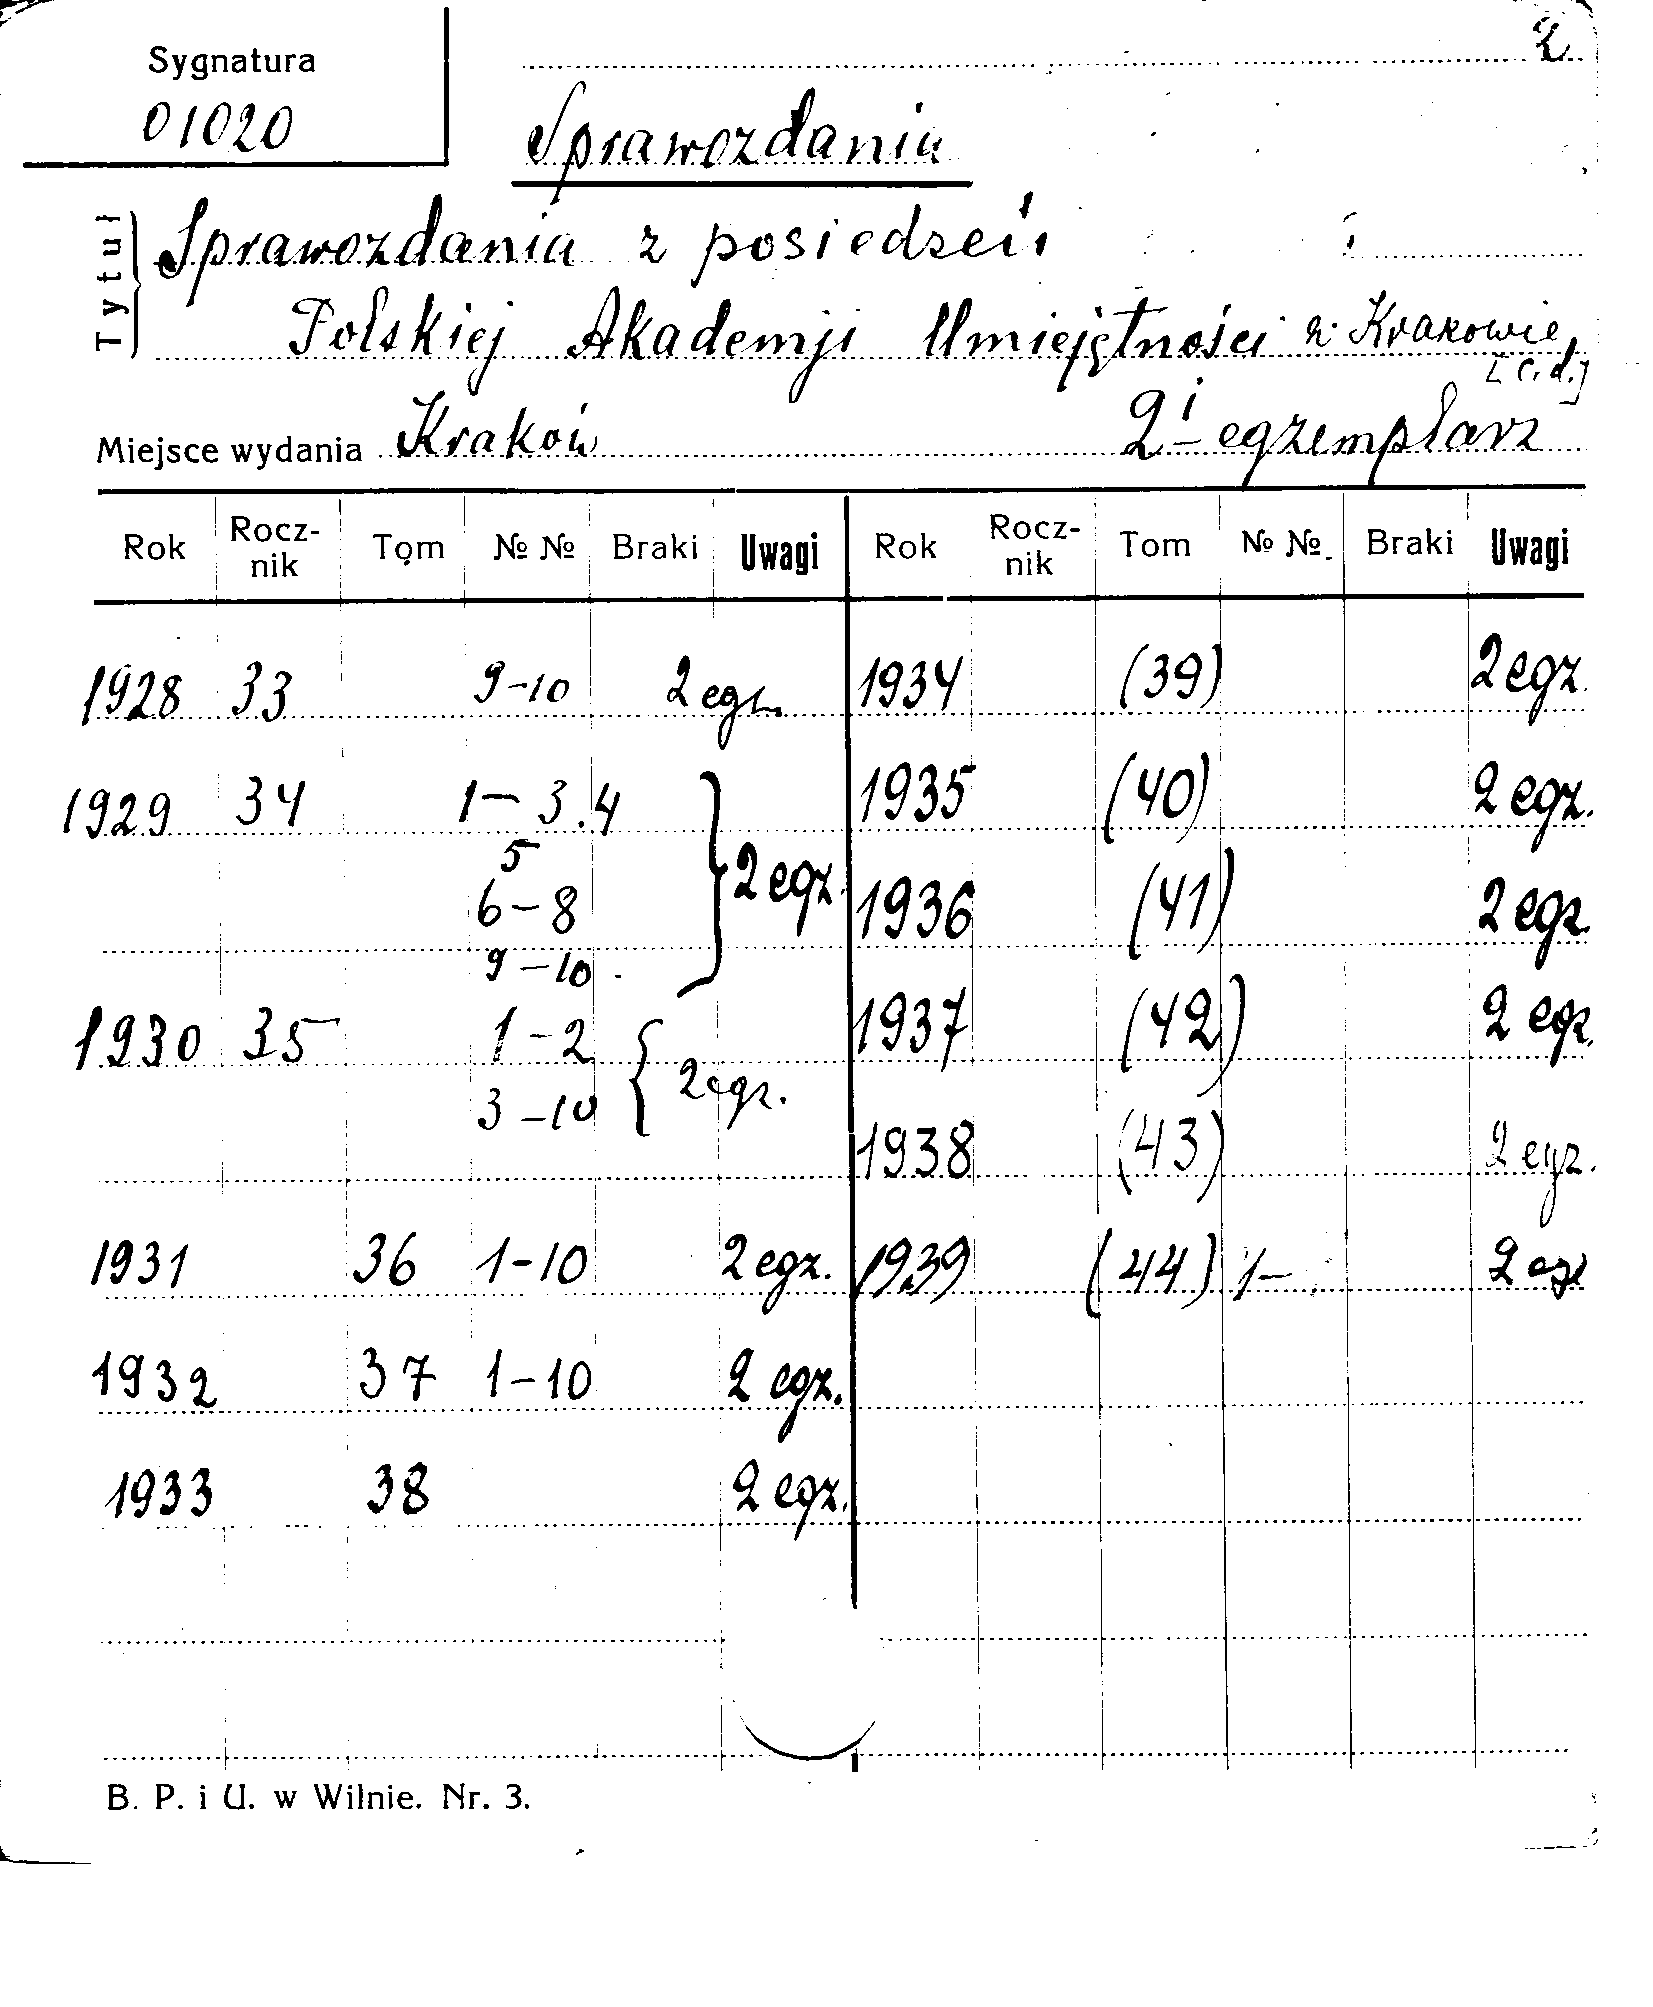 2.
Sygnatura
01020
Sprawozdania
Tytuł
Sprawozdania z posiedzeń
Polskiej Akademji Umiejętności w Krakowie
[c.d.]
Miejsce wydania Kraków 2i egzemplarz
Rok Rocz-nik Tom № № Braki Uwagi Rok Rocz-nik Tom № № Braki Uwagi
1928 33 9-10 2 egz. 1934 (39) 2 egz.
1929 34 1-3.4 1935 (40) 2 egz.
5
6-8 } 2 egz. 1936 (41) 2 egz.
9-10
1930 35 1-2 1937 (42) 2 egz.
3-10 { 2 egz.
1938 (43) 2 egz.
1931 36 1-10 2 egz. 1939 (44) 1- 2 egz
1932 37 1-10 2 egz.
1933 38 2 egz.
B. P. i U. w Wilnie. Nr. 3.